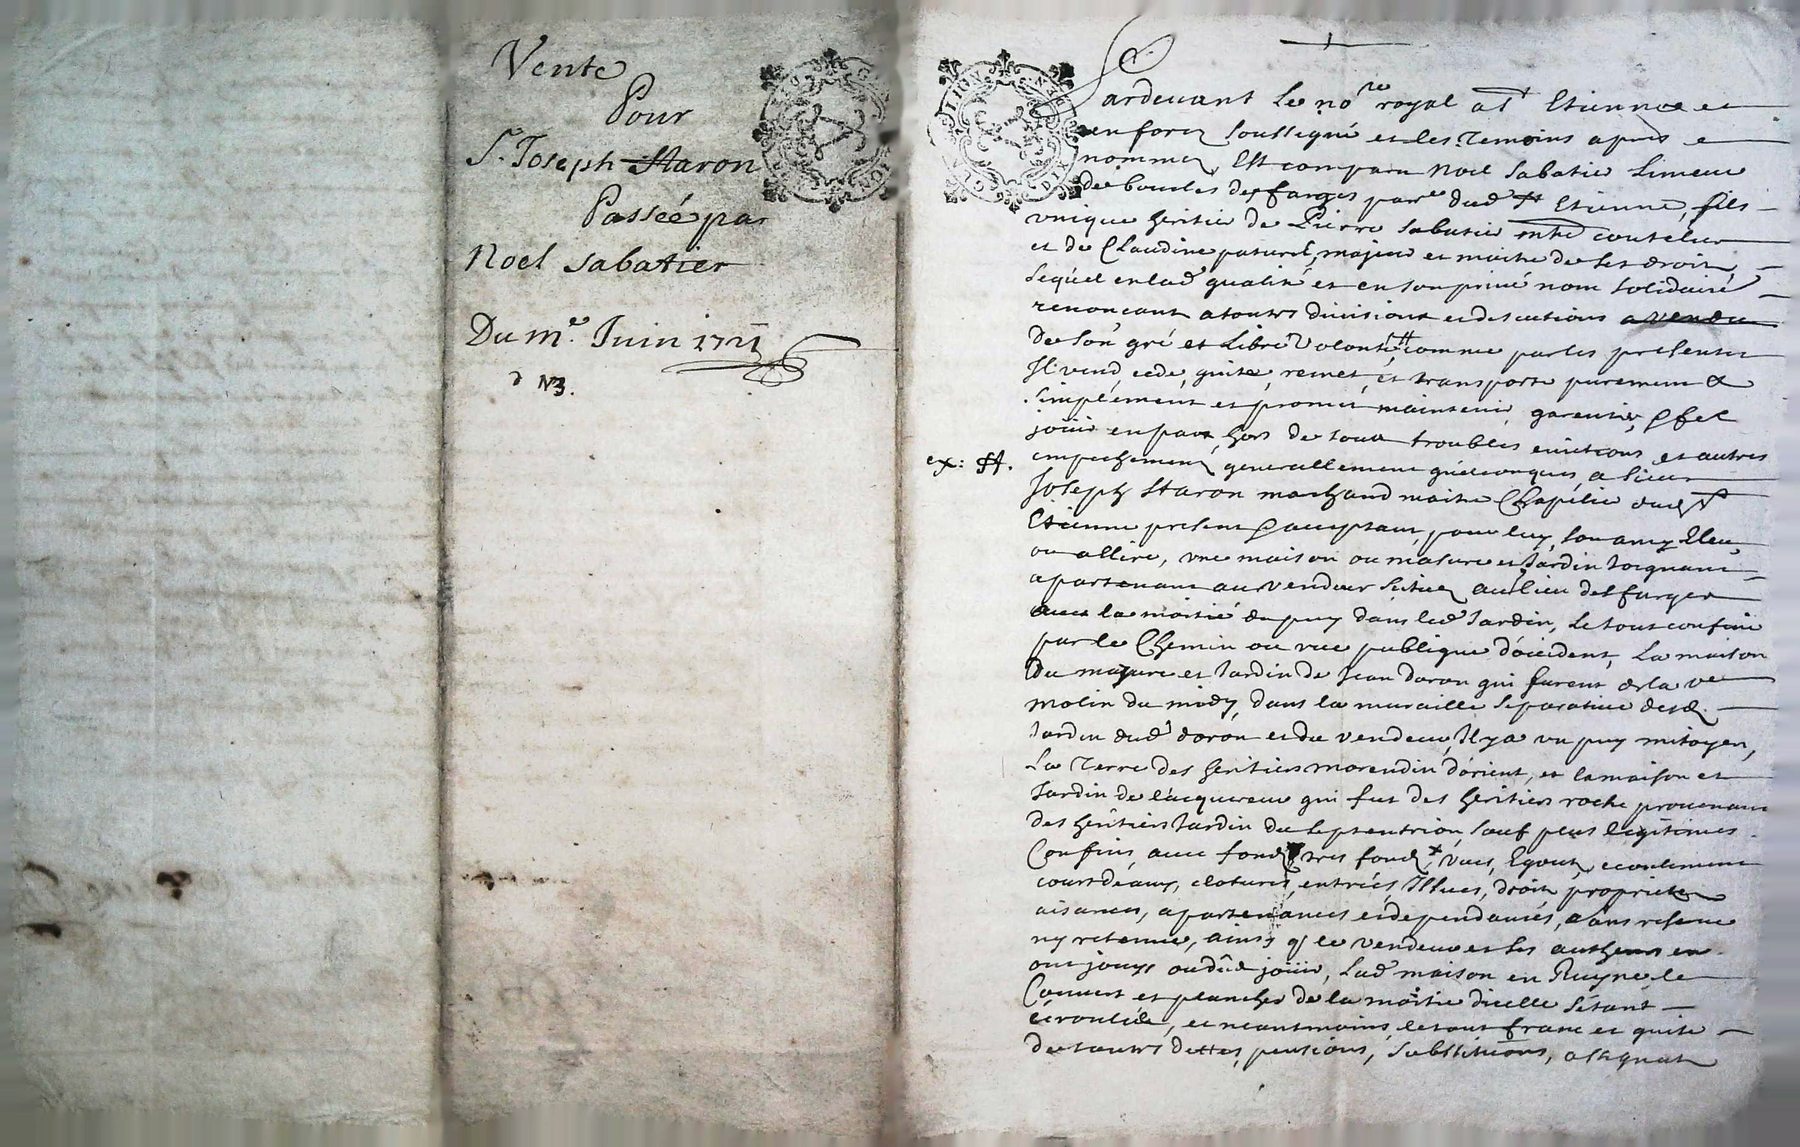 Vente
Pour
Sr. Joseph Staron
Passée par
Noel Sabatier
Du me. Juin 1721
N3.
Pardeuant Le nore royal a St Etienne
en forez soussigné et les temoins apres
nommez Est comparu Noel Sabatier Limeur
de boucles des farges parse dud St Etienne, fils
vnique heritier de Pierre Sabatier mtre coutelier
et de Claudine paturel, majeur et maitre de ses droits,
Lequel en lad qualité et en son privé nom solidaire
renoncant a toutes divisions et discutions a vendu
De son gré et Libre volonté comme par les presentes
Il vend cede, quite, remet, et transporte purement &
simplement et promet maintenir, garentir, & fe
jouir en paix hors de tous troubles euictions et autres
ex: St.
empechemens generallement quelconques, a sieur
Joseph Staron marchand maitre Chapelier dud St
Etienne present & acceptant, pour luy, son amy Eleu
ou a Elire, vne maison ou masure et Jardin Joignant
apartenant au vendeur scituez au lieu des farges
auec la moitié du puy dans led Jardin, le tout confiné
par le Chemin ou rue publique d'occident, La maison
Du masure et Jardin de Jean doron qui furent de la ve
molin du midy, dans la muraille separatiue desd
Jardin dud doron et du vendeur, Il y a vn puy mitoyen,
La Terre des heritiers morendin d'orient, et la maison et
Jardin de l'acquereur qui fut des heritiers roche prouenant
des heritiers Jardin du septentrion, sauf plus legitimes
Confins, auec fondz tres fondz, vües, Egouts, ecoulement
cours d'eaux, clotures, entrées Issues, droits proprietez
aisances, apartenances et dependances, sans reserue
ny retenue, ainsy q le vendeur et ses autheurs en
ont jouys ou dûs jouir, Lad maison en Ruyne le
Couuert et plancher de la moitie d'icelle s'étant
écroulée, et neantmoins le tout franc et quite
de toutes dettes, pensions, substitutions, asignat